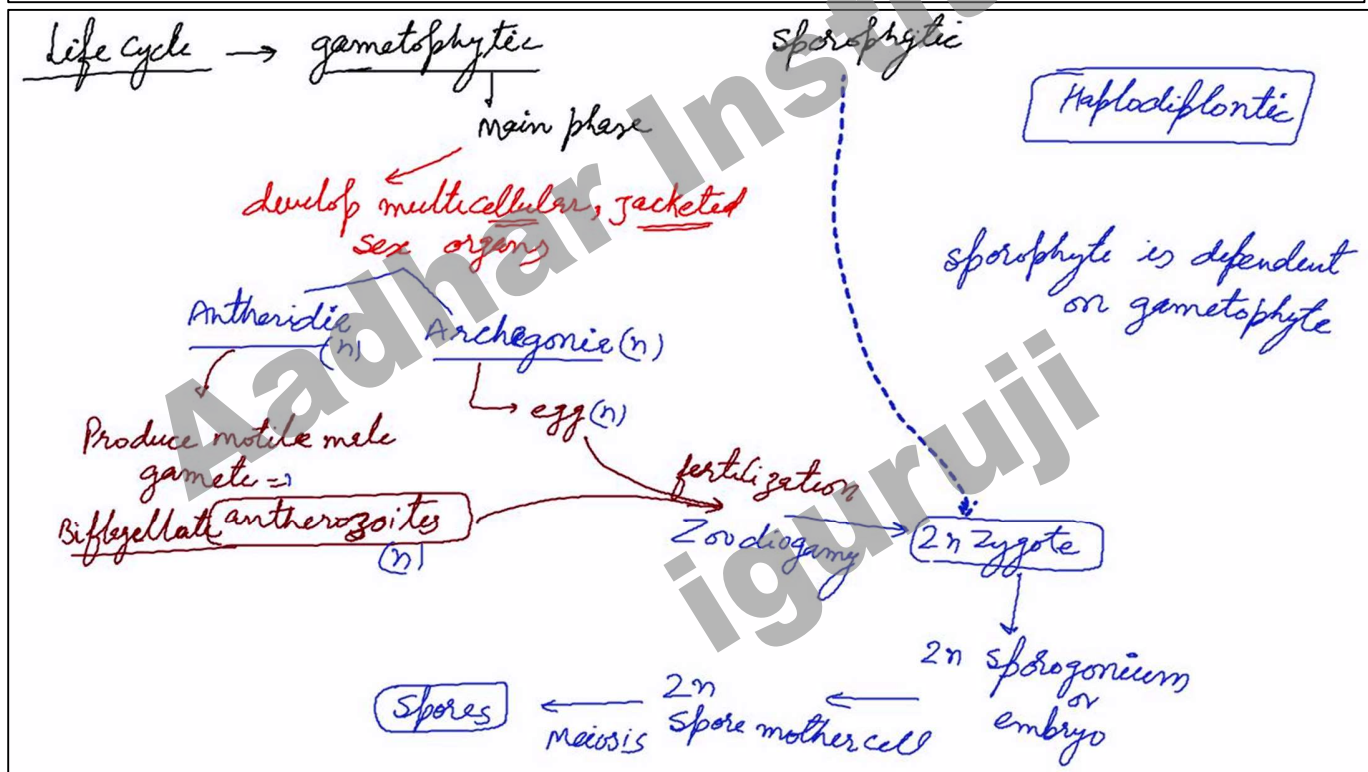 Life cycle → gametophytic sporophytic
Haplodiplontic
Main phase
develop multicellular, Jacketed
sex organs
sporophyte is dependent
on gametophyte
Antheridia
(n)
Archegonia (n)
egg (n)
Produce motile male
gamete =)
Biflagellate antherozoites
(n)
fertilization
Zoodiogamy
2n Zygote
2n sporogonium
or
embryo
2n
Spore mother cell
Meiosis
Spores
Aadhar Insti
iguruji